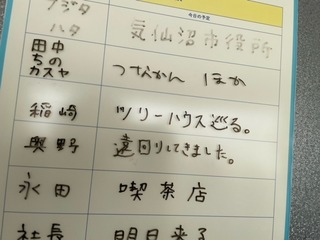 今日の予定
フジタ
ハタ
気仙沼市役所
田中
ちの
カスヤ
つなかん ほか
稲崎
ツリーハウス巡る。
奥野
遠回りしてきました。
永田
喫茶店
社長
明日来る